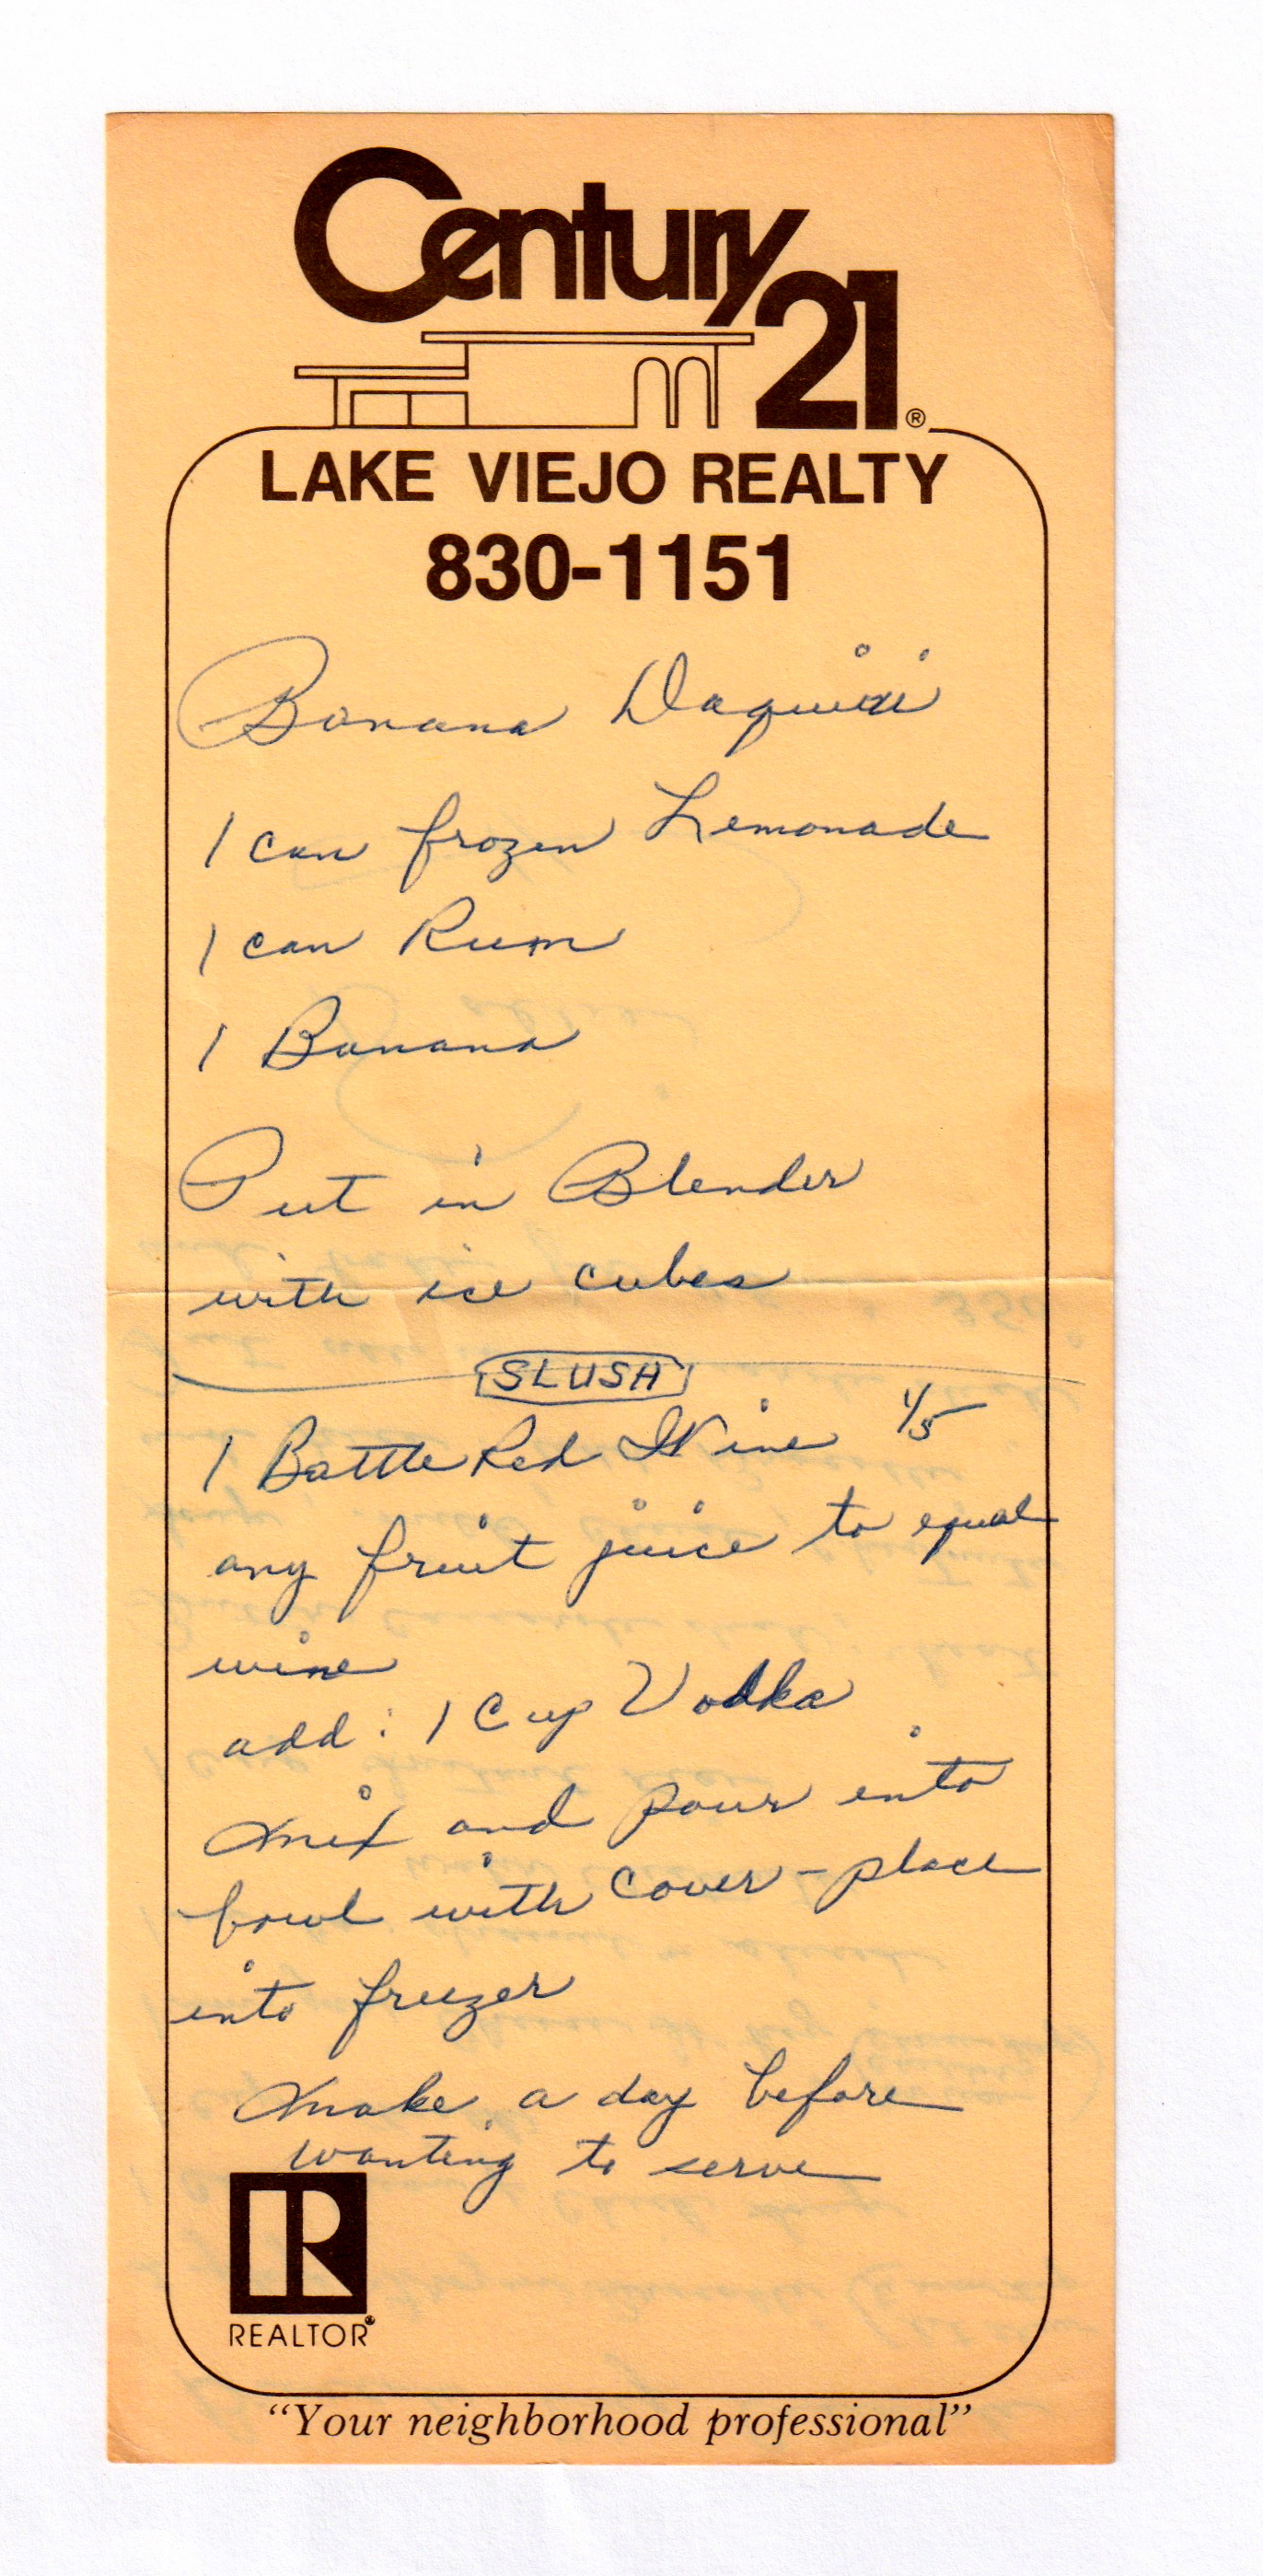 Century 21®
LAKE VIEJO REALTY
830-1151
Banana Daquiri
1 can frozen Lemonade
1 can Rum
1 Banana
Put in Blender
with ice cubes
SLUSH
1 Bottle Red Wine 1/5
any fruit juice to equal
wine
add: 1 Cup Vodka
mix and pour into
bowl with cover - place
into freezer
make a day before
wanting to serve
R
REALTOR®
"Your neighborhood professional"